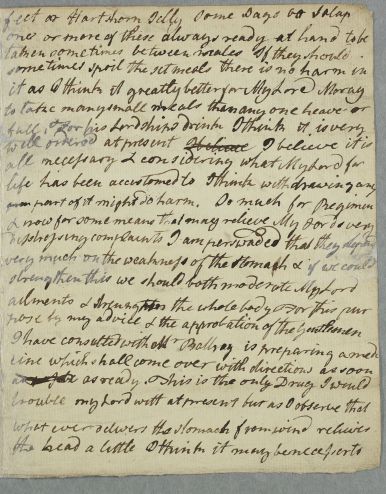 feet or Hartshorn Jelly some Days to Salap
one or more of these always ready at hand to be
taken sometimes between meals If they should
sometimes spoil the set meals there is no harm in
it as I think it greatly better for My Lord Moray
to take many small meals than any one heave or
full. For his Lordships drink I think it is very
well ordered at present I believe it is
all necessary & considering what My Lord for
life has been accustomed to I think withdrawing any
part of it might do harm. So much for Regimen
& now for some means that may relieve My Lords very
distressing complaints I am perswaded that they depend
very much on the weakness of the stomach & if we could
strengthen this we should both moderate My Lord
ailments & strengthen the whole body For this pur
pose by my advice & the approbation of the Gentlemen
I have consulted with Mr is preparing a medi
cine which shall come over with directions as soon
as ready. This is the only Drug I would
trouble my Lord with at present but as I observe that
what ever delivers the stomach from wind relieves
the head a little I think it may be necessary to